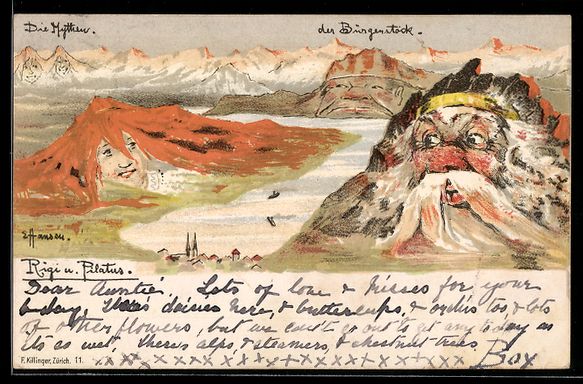 Die Mythen.
der Bürgenstock.
E Hansen.
Rigi u. Pilatus.
Dear Auntie. Lots of love & kisses for your
b-day. There's daisies here, & buttercups, & orchis too & lots
of other flowers, but we can't go out to get any today as
its so wet. Theres alps & steamers, & chestnut trees
x x x x x x x x x x x x x x x x x x Box
F. Killinger, Zürich. 11.